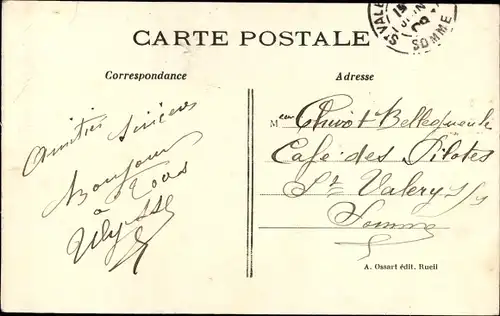 CARTE POSTALE
St VALE
15
JUIN
09
SOMME
Correspondance
Adresse
Amitiés Sincères
Bonjour
à tous
Ulysse
Meur Chivot-Bellegueule
Café des Pilotes
St Valery s/s
Somme
A. Ossart édit. Rueil